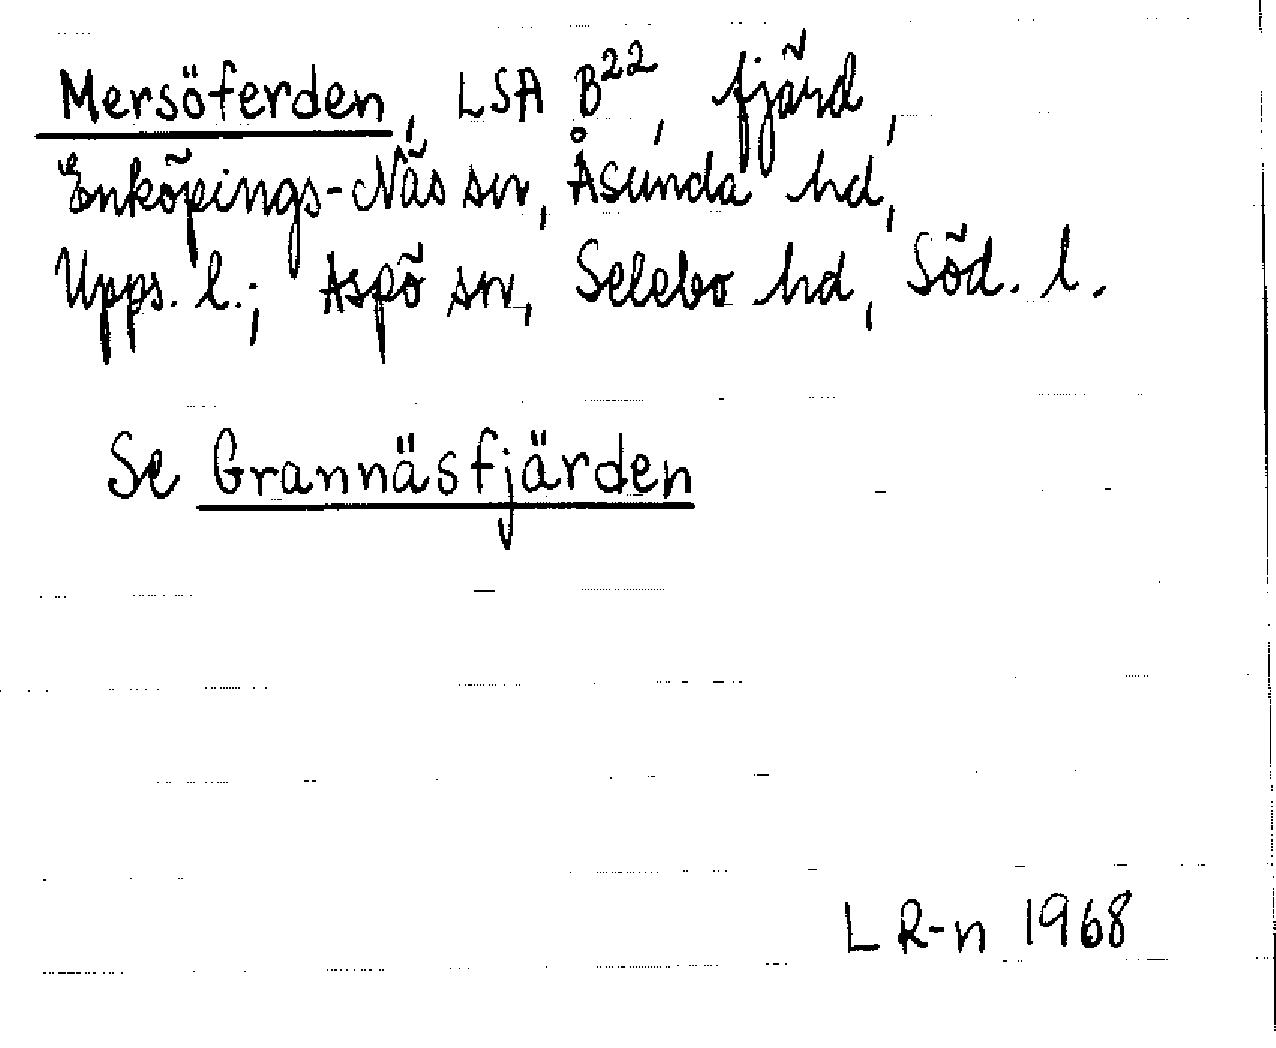 Mersöferden, LSA B²², fjärd,
Enköpings-Näs sn, Åsunda hd,
Upps. l.; Aspö sn, Selebo hd, Söd. l.
Se Grannäsfjärden
L R-n 1968